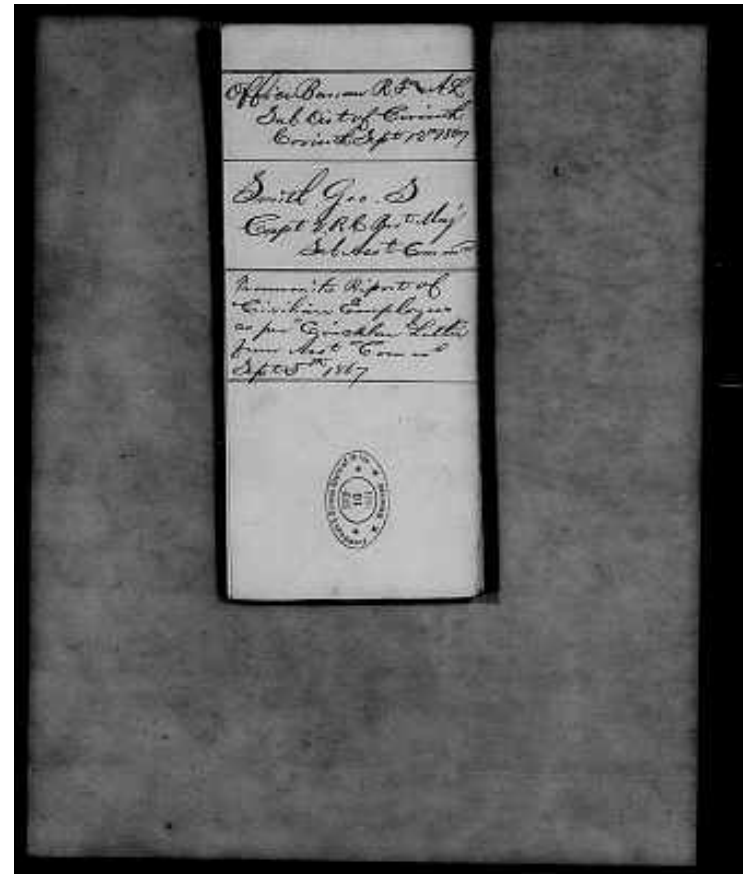 Office Bureau R F & A L
Sub Dist of Corinth
Corinth Sept 12th 1867
Smith Geo. S
Capt V.R.C. Bvt Maj
Sub Asst Comm
Report of
Civilian Employees
as per Circular Letter
from Asst Comr
Sept 5th 1867